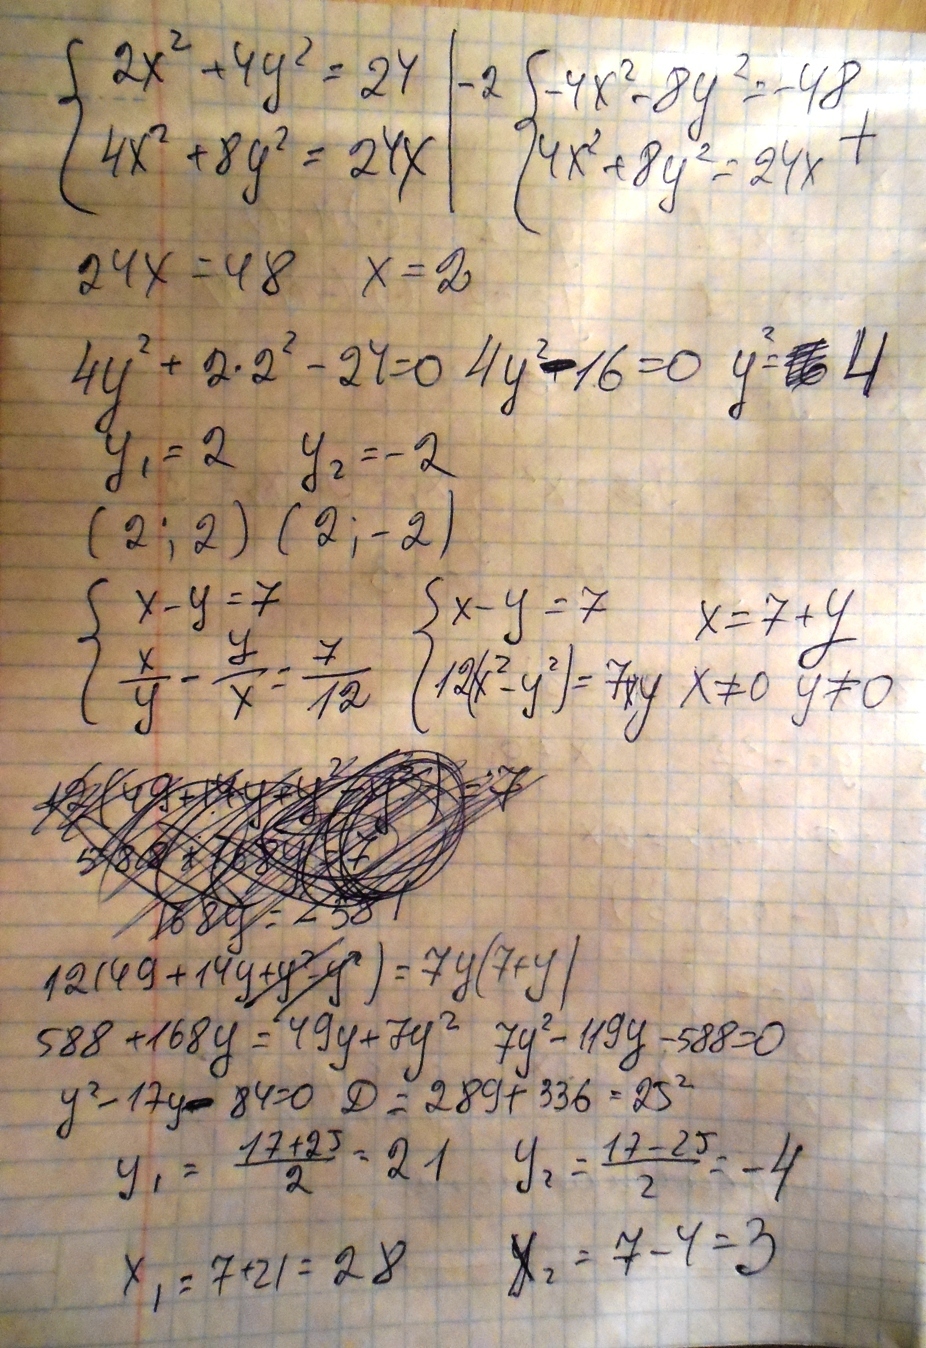 { 2x² + 4y² = 24 | -2 { -4x² - 8y² = -48
{ 4x² + 8y² = 24x | { 4x² + 8y² = 24x +
24x = 48 x = 2
4y² + 2·2² - 24=0 4y² - 16 = 0 y² = 4
y₁ = 2 y₂ = -2
(2; 2) (2; -2)
{ x - y = 7 { x - y = 7 x = 7 + y
{ x/y - y/x = 7/12 { 12(x² - y²) = 7xy x ≠ 0 y ≠ 0
12(49 + 14y + y² - y²) = 7y(7+y)
588 + 168y = 49y + 7y² 7y² - 119y - 588=0
y² - 17y - 84=0 D = 289 + 336 = 25²
y₁ = (17+25)/2 = 21 y₂ = (17-25)/2 = -4
x₁ = 7+21 = 28 x₂ = 7 - 4 = 3